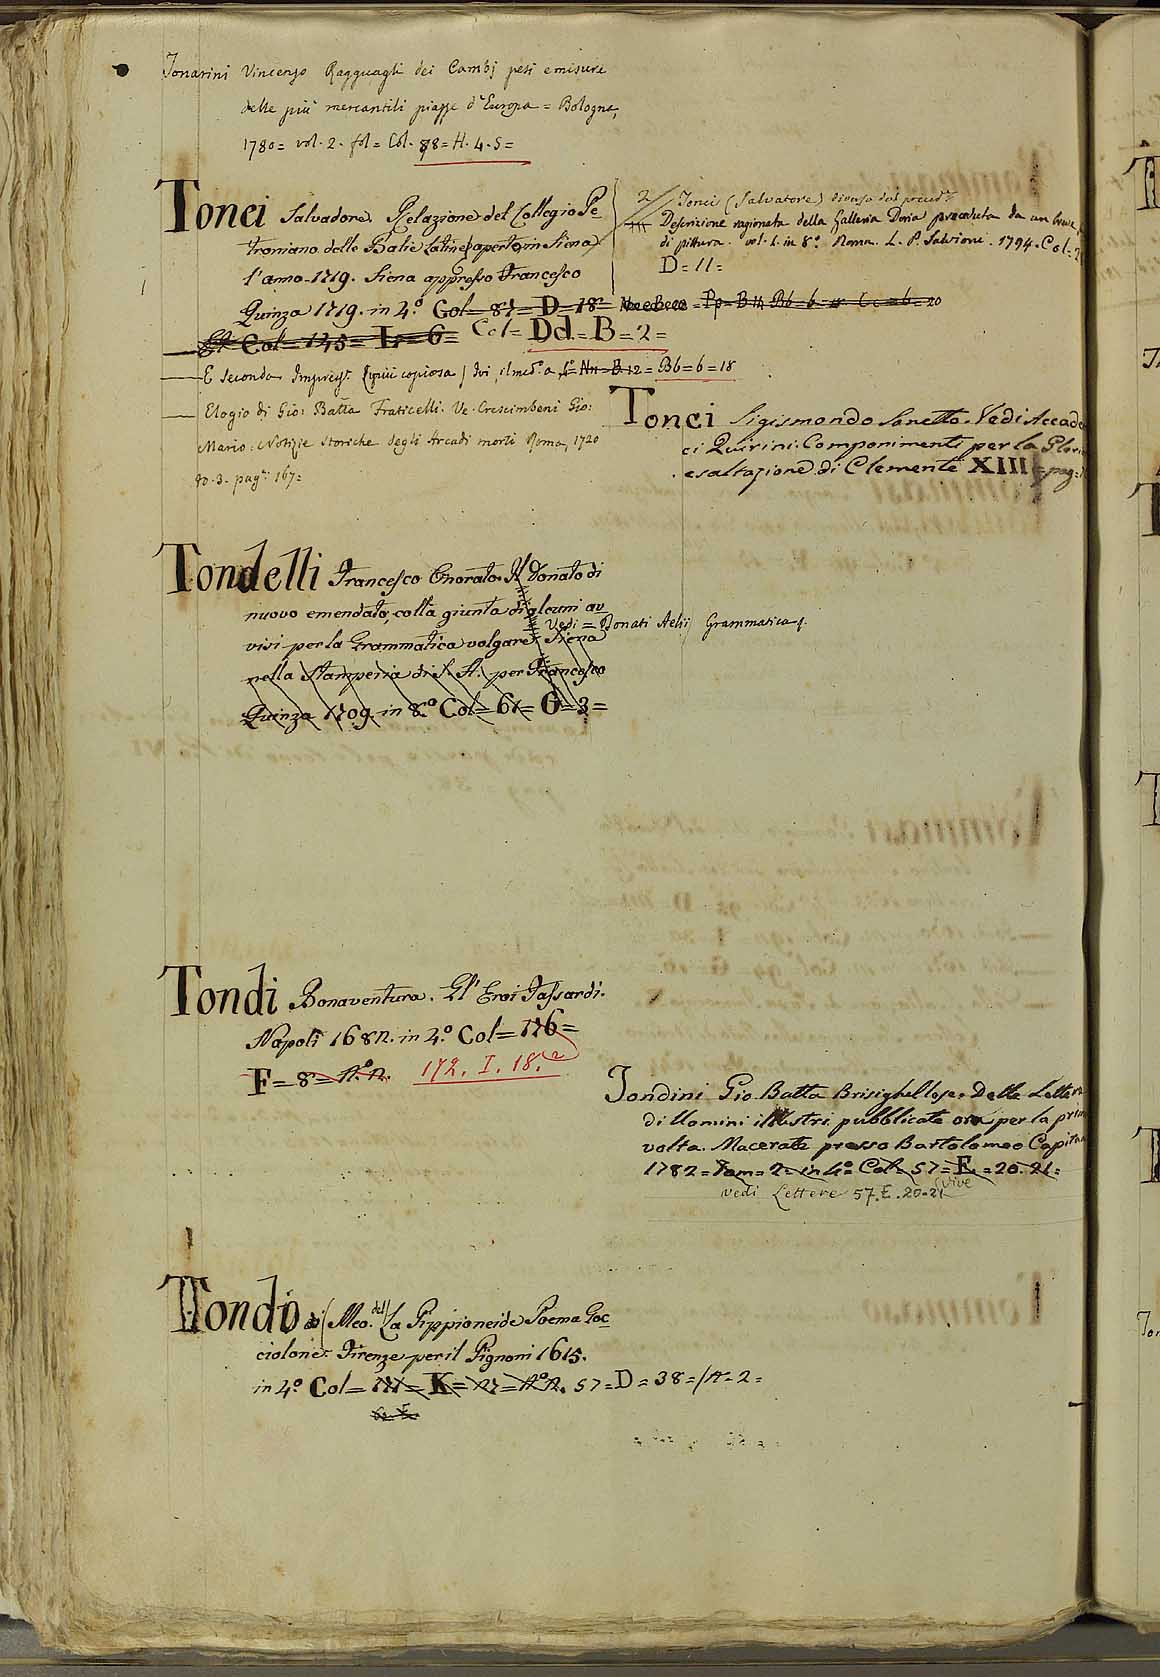 Tonarini Vincenzo Ragguagli dei Cambj pesi e misure
delle più mercantili piazze d'Europa = Bologna,
1780 = vol. 2. fol = Col. 78 = H. 4. 5 =
Tonci Salvadore. Relazione del Collegio Pe
troniano delle Balie Latine aperto in Siena
l'anno 1719. Siena appresso Francesco
Quinza 1719. in 4.º Col = 87 = D = 18 =
Col = 145 = L = 6 = Col = Dd = B = 2 =
E seconda Impres. (più copiosa) Ivi, il med.º a Bb = 6 = 18
Elogio di Gio: Batta Fraticelli. Ve. Crescimbeni Gio:
Mario. Notizie storiche degli Arcadi morti Roma, 1720
to. 3. pag. 167 =
2 Tonci (Salvatore) diverso dal preced.
Descrizione ragionata della Galleria Doria preceduta da un breve
di pittura. vol. 1. in 8º. Roma. L. P. Salvioni. 1794. Col =
D = 11 =
Tonci Sigismondo Sanetto. Vedi Accade
ci Quirini. Componimenti per la Glori
esaltazione di Clemente XIII = pag:
Tondelli Francesco Onorato. Il Donato di
nuovo emendato, colla giunta di alcuni av
visi per la Grammatica volgare. Siena
Vedi = Donati Aelii Grammatica
nella Stamperia di S. A. per Francesco
Quinza 1709. in 8.º Col = 61 = G = 3 =
Tondi Bonaventura. Gl' Eroi Tassardi.
Napoli 1682. in 4.º Col = 116 =
F = 8 = N.º 2. 172. I. 18.
Tondini Gio. Batta Brisighellese. Delle Lettere
di Uomini illustri pubblicate ora per la prim
volta. Macerata presso Bartolomeo Capitan
1782 = Tom = 2 = in 4º = Col = 57 = E = 20. 21 =
vedi Lettere 57. E. 20. 21
Tondo (Meo. del) La Pippioneide Poema Goc
ciolone. Firenze per il Pignoni 1615.
in 4.º Col = 111 = K = 27 = N.º 2. 57 = D = 38 = 2 =